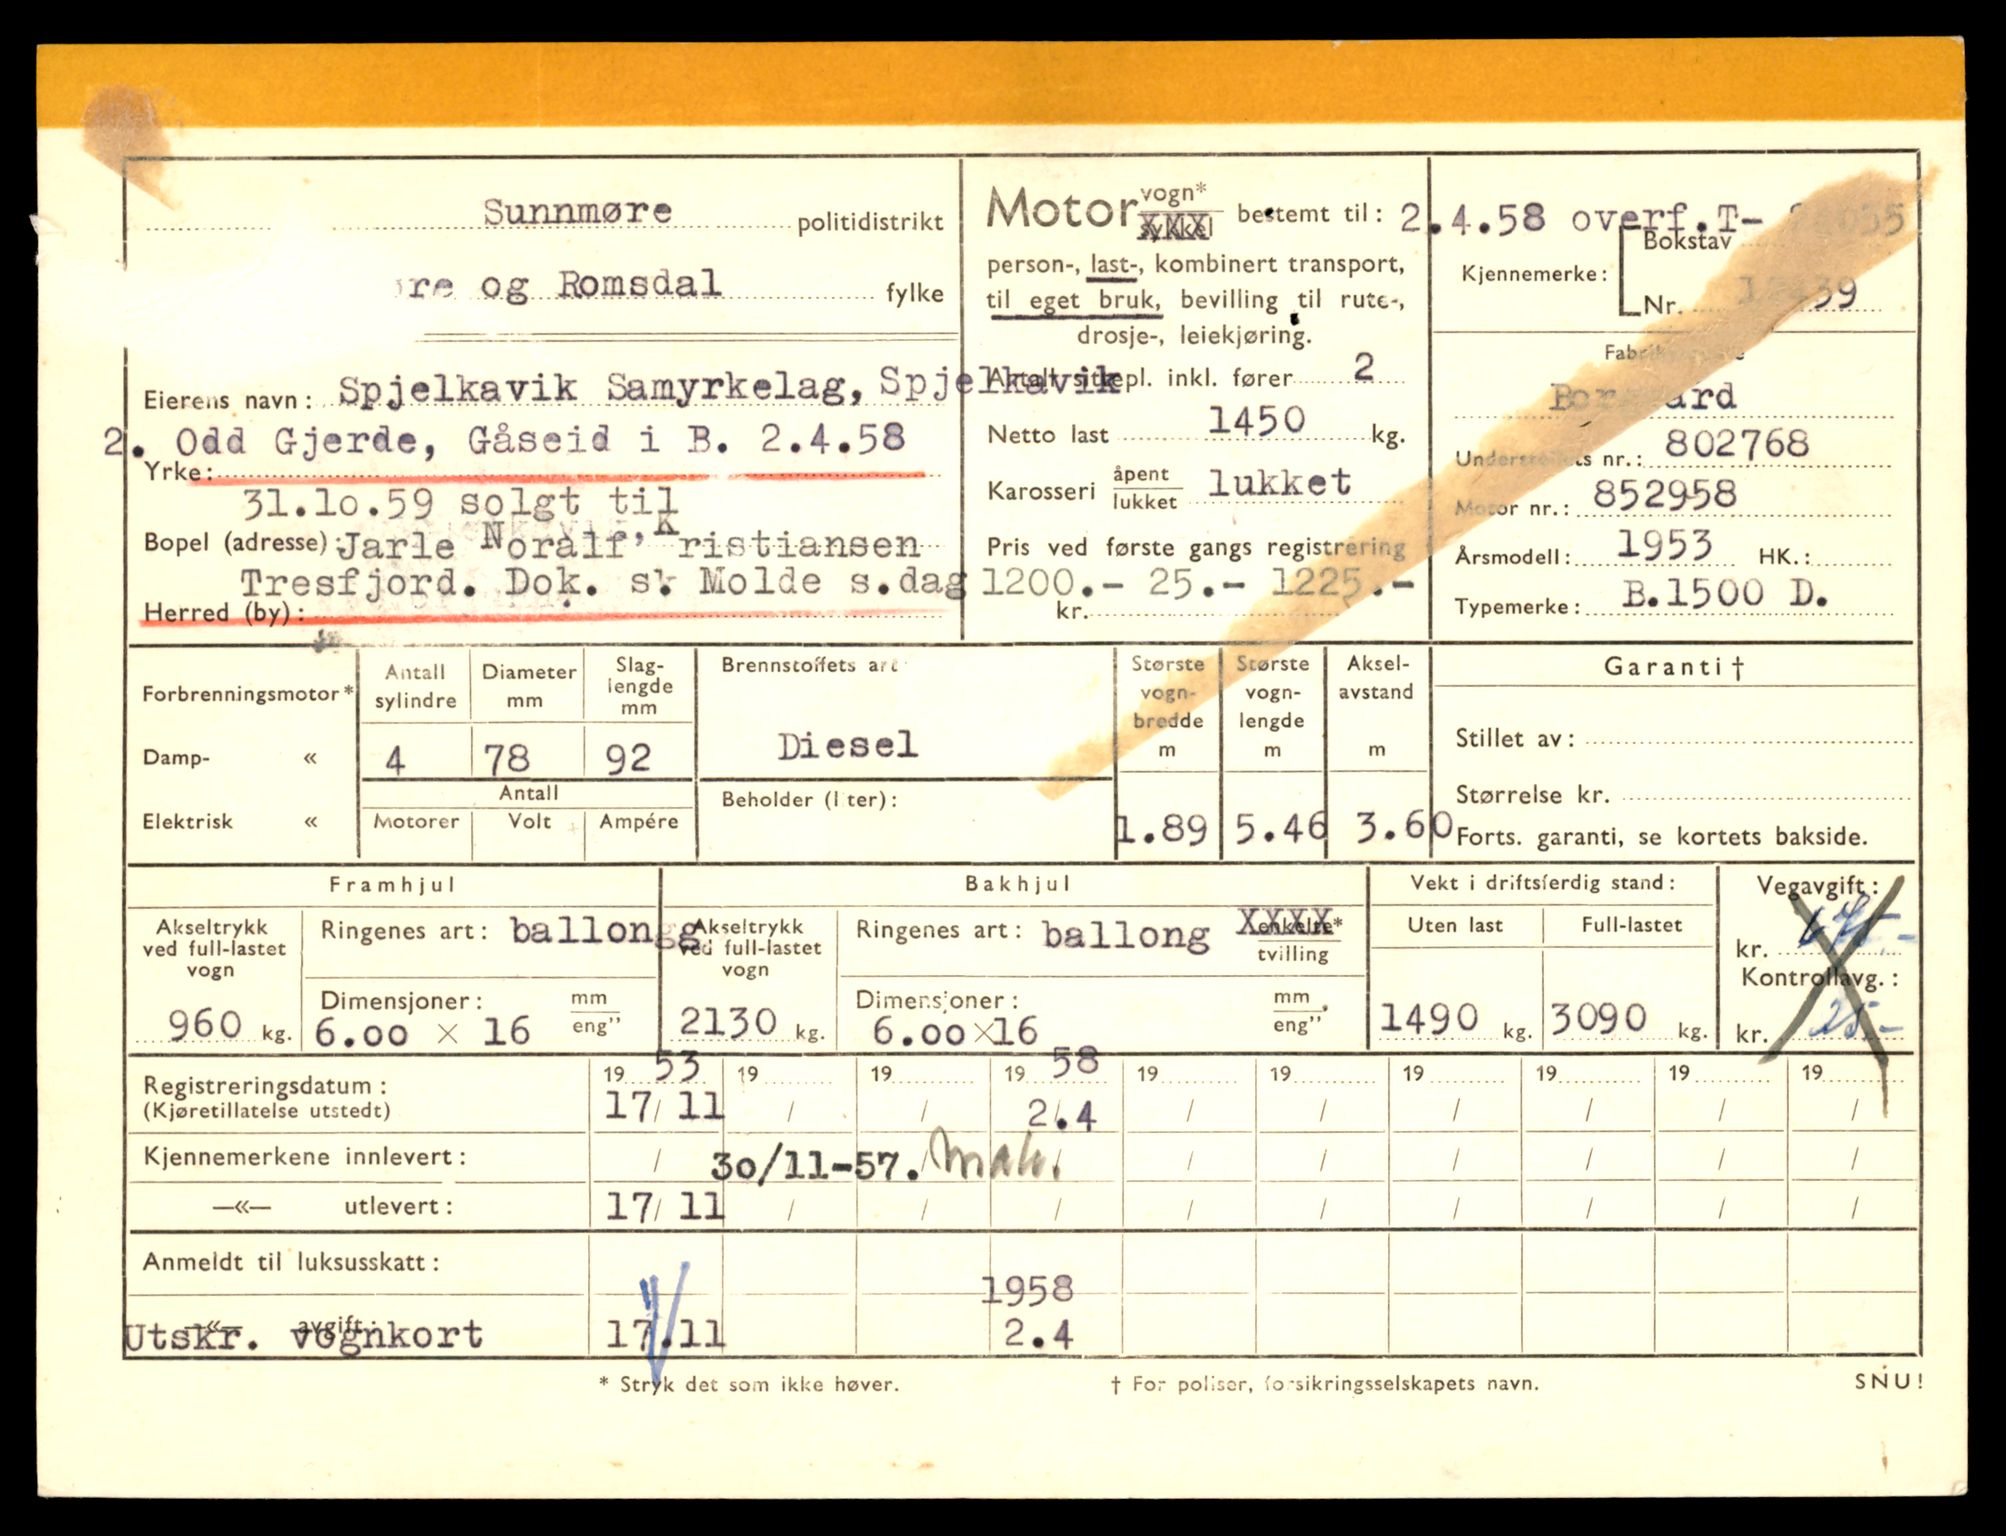 Sunnmøre politidistrikt
re og Romsdal fylke
Eierens navn: Spjelkavik Samyrkelag, Spjelkavik
2. Odd Gjerde, Gåseid i B. 2.4.58
Yrke:
31.10.59 solgt til
Bopel (adresse): Jarle Noralf Kristiansen
Tresfjord. Dok. s. Molde s.dag
Herred (by):
Motor vogn* sykkel bestemt til:
person-, last-, kombinert transport,
til eget bruk, bevilling til rute-,
drosje-, leiekjøring.
Antall sittepl. inkl. fører 2
Netto last 1450 kg.
Karosseri åpent lukket lukket
Pris ved første gangs registrering
1200.- 25.- 1225.-
kr.
2.4.58 overf. T-
Bokstav
Kjennemerke:
Nr.
Fabrikkmerke
Borgward
Understellets nr.: 802768
Motor nr.: 852958
Årsmodell: 1953 HK.:
Typemerke: B.1500 D.
Forbrenningsmotor*
Damp- «
Elektrisk «
Antall sylindre
Diameter mm
Slag-lengde mm
4 78 92
Antall
Motorer Volt Ampére
Brennstoffets art
Diesel
Beholder (liter):
Største vogn-bredde m
Største vogn-lengde m
Aksel-avstand m
1.89 5.46 3.60
Garanti †
Stillet av:
Størrelse kr.
Forts. garanti, se kortets bakside.
Framhjul
Akseltrykk ved full-lastet vogn
960 kg.
Ringenes art: ballong
Dimensjoner: mm eng"
6.00 × 16
Bakhjul
Akseltrykk ved full-lastet vogn
2130 kg.
Ringenes art: ballong enkelte* tvilling
Dimensjoner: mm eng"
6.00 × 16
Vekt i driftsferdig stand:
Uten last Full-lastet
1490 kg. 3090 kg.
Vegavgift:
kr.
Kontrollavg.:
kr. 25.-
Registreringsdatum: 19 53 19 19 19 58 19 19 19 19 19 19
(Kjøretillatelse utstedt) 17/11 / / 2.4 / / / / / /
Kjennemerkene innlevert: / 30/11-57. / / / / / /
—«— utlevert: 17/11 / / / / / / / / /
Anmeldt til luksusskatt:
1958
—«— avgift:
Utskr. vognkort 17.11 2.4
* Stryk det som ikke høver.
† For poliser, forsikringsselskapets navn.
SNU!